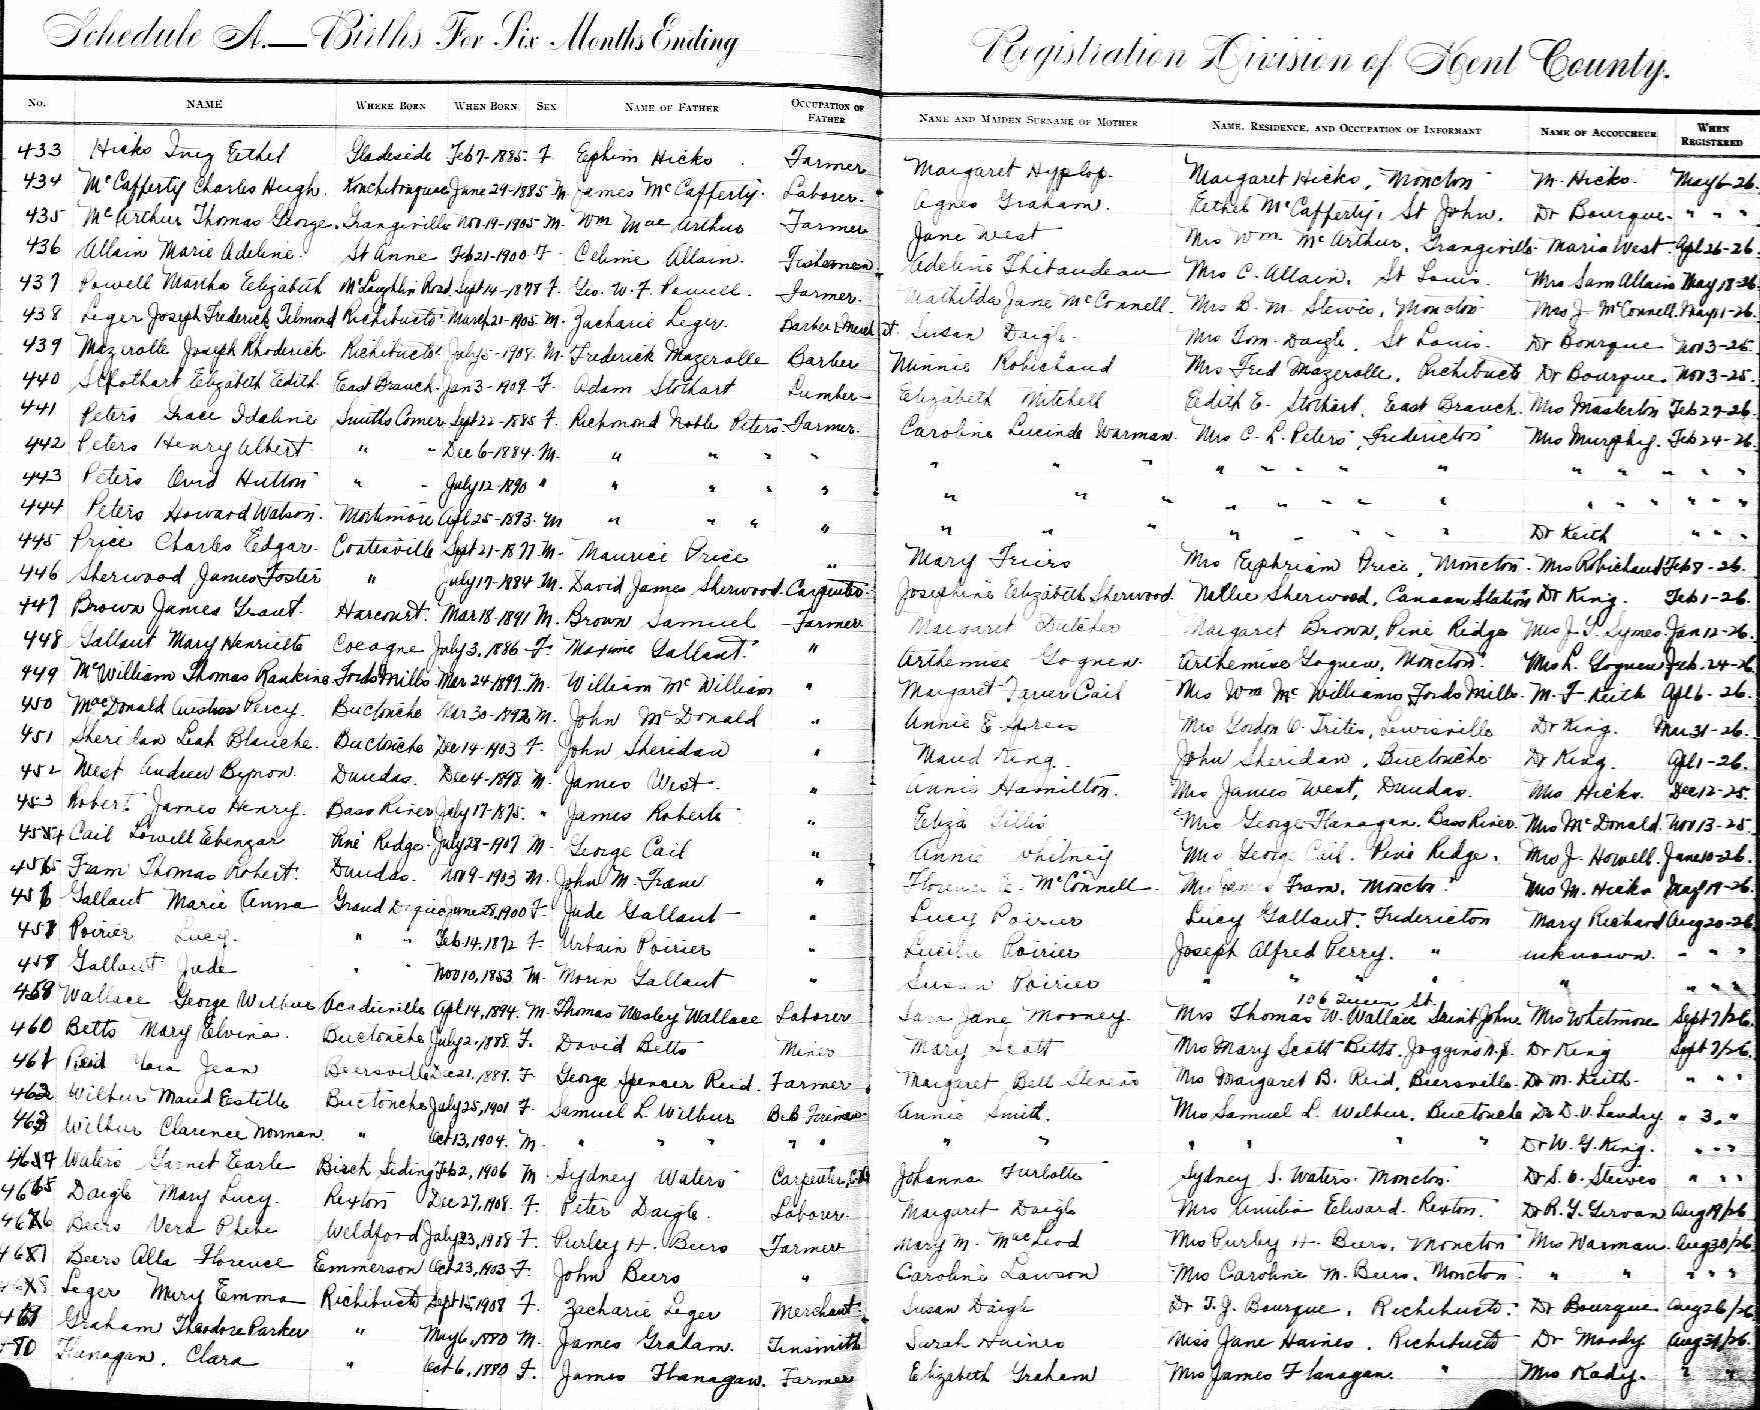 Schedule A.—Births For Six Months Ending
Registration Division of Kent County.
No. NAME WHERE BORN WHEN BORN SEX NAME OF FATHER OCCUPATION OF FATHER NAME AND MAIDEN SURNAME OF MOTHER NAME, RESIDENCE, AND OCCUPATION OF INFORMANT NAME OF ACCOUCHEUR WHEN REGISTERED
433 Hicks Inez Eethel Gladeside Feb 7-1885. F Ephim Hicks Farmer Margaret Hyslop. Margaret Hicks, Moncton M. Hicks. May 6-26.
434 McCafferty Charles Hugh. Kouchibouguac June 29-1885 M James McCafferty. Laborer. Agnes Graham. Eethel McCafferty, St John. Dr Bourque. " " "
435 McArthur Thomas George. Grangeville Nov 19-1905 M. Wm MacArthur Farmer Jane West Mrs Wm McArthur, Grangeville Maria West Apl 26-26.
436 Allain Marie Adeline. St Anne Feb 21-1900 F Celime Allain. Fishermen Adeline Thibaudeau Mrs C. Allain. St Louis. Mrs Sam Allain May 18-26.
437 Powell Martha Elizabeth McLaughlin Road. Sept 14-1878 F. Geo. W. F. Powell. Farmer. Mathilda Jane McConnell. Mrs B. M. Steves, Moncton Mrs J. McConnell. May 11-26.
438 Leger Joseph Frederick Tilmond Richibucto March 21-1905 M. Zacharie Leger. Barber & Merch't. Susan Daigle. Mrs Tom. Daigle. St Louis. Dr Bourque Nov 3-25.
439 Mazerolle Joseph Rhoderick Richibucto July 5-1908. M. Frederick Mazerolle Barber Minnie Robichaud Mrs Fred Mazerolle, Richibucto Dr Bourque. Nov 3-25.
440 Stothart Elizabeth Eedith East Branch. Jan 3-1909. F. Adam Stothart Lumber- Elizabeth Mitchell Eedith E. Stothart, East Branch. Mrs Masterton Feb 27-26.
441 Peters Grace Idaline Smiths Corner Sept 22-1885 F. Richmond Noble Peters Farmer. Caroline Lucinda Warman. Mrs C. L. Peters, Fredericton Mrs Murphy. Feb 24-26.
442 Peters Henry Albert " " Dec 6-1884. M. " " " " " " " " " " " " " " " " " "
443 Peters Ovid Hutton " " July 12-1890 " " " " " " " " " " " " " " " " " " "
444 Peters Howard Watson. Mortimore Apl 25-1893. M " " " " " " " " " " " " Dr Keith " " "
445 Price Charles Edgar. Coatesville Sept 21-1877. M. Maurice Price " Mary Friars Mrs Ephriam Price, Moncton. Mrs Robichaud Feb 8-26.
446 Sherwood James Foster " July 17-1884 M. David James Sherwood. Carpenter. Josephine Elizabeth Sherwood Nellie Sherwood, Canaan Station Dr King. Feb 1-26.
447 Brown James Grant. Harcourt. Mar 18-1891 M. Brown Samuel Farmer Margaret Dutcher Margaret Brown, Pine Ridge Mrs J. G. Symes Jan 12-26.
448 Gallant Mary Henriette Cocagne July 3, 1886 F. Maxime Gallant. " Arthemise Goguen. Arthemise Goguen, Moncton. Mrs L. Goguen Feb. 24-26
449 McWilliam Thomas Rankine Fords Mills Mar 24-1897. M. William McWilliam " Margaret Cail Mrs Wm McWilliams Fords Mills. M. F. Keith Apl 6-26.
450 MacDonald Percy. Buctouche Mar 30-1892 M. John McDonald " Annie E. Mrs Gordon O. Trites, Lewisville Dr King. Mar 31-26.
451 Sheridan Leah Blanche. Buctouche Dec 14-1903 F. John Sheridan " Maud King. John Sheridan, Buctouche Dr King. Apl 1-26.
452 West Andrew Byron. Dundas. Dec 4-1898 M. James West. " Annie Hamilton. Mrs James West, Dundas. Mrs Hicks. Dec 12-25.
453 Robert James Henry. Bass River July 17-1875. " James Roberts " Eliza Gillis Mrs George Flanagan. Bass River. Mrs McDonald. Nov 13-25.
454 Cail Lowell Ebengar Pine Ridge. July 28-1907 M. George Cail " Annie Whitney Mrs George Cail. Pine Ridge. Mrs J. Howell. June 10-26.
455 Fram Thomas Robert. Dundas. Nov 9-1903 M. John M. Frame " Florence E. McConnell. Mrs James Fram. Moncton. Mrs M. Hicks May 19-26.
456 Gallant Marie Anna Grand Digue June 28, 1900 F. Jude Gallant " Lucy Poirier Lucy Gallant. Fredericton Mary Richard Aug 20-26.
457 Poirier Lucy. " " Feb 14, 1872 F. Urbain Poirier " Lucille Poirier Joseph Alfred Perry. " unknown. " " "
458 Gallant Jude " " Nov 10, 1853 M. Morin Gallant " Susan Poirier " " " " " " " "
459 Wallace George Wilbur Acadieville Apl 14, 1894. M. Thomas Wesley Wallace Laborer Sara Jane Mooney Mrs Thomas W. Wallace 106 Queen St. Saint John. Mrs Whetmore Sept 7/26.
460 Betts Mary Elvina. Buctouche July 2, 1888. F. David Betts Miner Mary Scott Mrs Mary Scott Betts. Joggins N.S. Dr King Sept 7/26.
461 Reid Jean Beersville Dec 21, 1889. F George Spencer Reid. Farmer Margaret Bell Stevens Mrs Margaret B. Reid, Beersville. Dr M. Keith- " " "
462 Wilbur Maud Estille Buctouche July 25, 1901 F. Samuel L. Wilbur Annie Smith. Mrs Samuel L. Wilbur. Buctouche Dr D. V. Landry " 3. "
463 Wilbur Clarence Norman. " Oct 13, 1904. M. " " " " " " " " " " " Dr W. G. King. " " "
464 Waters Garnet Earle Birch Siding Feb 2, 1906 M. Sydney Waters Carpenter, Johanna Furlotte Sydney S. Waters. Moncton. Dr S. O. Steeves " " "
465 Daigle Mary Lucy. Rexton Dec 27, 1908. F. Peter Daigle. Laborer. Margaret Daigle Mrs Amilia Edward. Rexton. Dr R. G. Girvan Aug 19/26
466 Beers Vera Phebe Weldford July 23, 1908 F. Purley H. Beers Farmer Mary M. MacLeod Mrs Purley H. Beers. Moncton Mrs Warman. Aug 30/26.
467 Beers Alla Florence Emmerson Oct 23, 1903 F. John Beers " Caroline Lawson Mrs Caroline M. Beers. Moncton. " " " " "
468 Leger Mary Emma Richibucto Sept 15, 1908 F. Zacharie Leger Merchant. Susan Daigle Dr T. J. Bourque. Richibucto. Dr Bourque Aug 26/26.
469 Graham Theodore Parker " May 6, 1880 M. James Graham. Tinsmith Sarah Haines Miss Jane Haines. Richibucto Dr Moody Aug 31/26.
470 Flanagan. Clara " Oct 6, 1880 F. James Flanagan. Farmer Elizabeth Graham Mrs James Flanagan. " Mrs Kady. " "